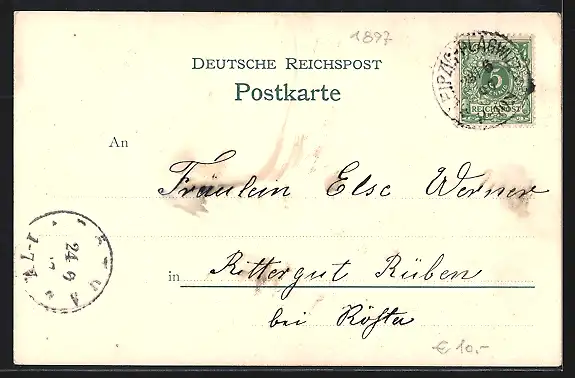 1897
DEUTSCHE REICHSPOST
Postkarte
LEIPZIG-PLAGWITZ
5
REICHSPOST
An
Fräulein Else Werner
in Rittergut Rüben
bei Rötha
24 9
€ 10,-